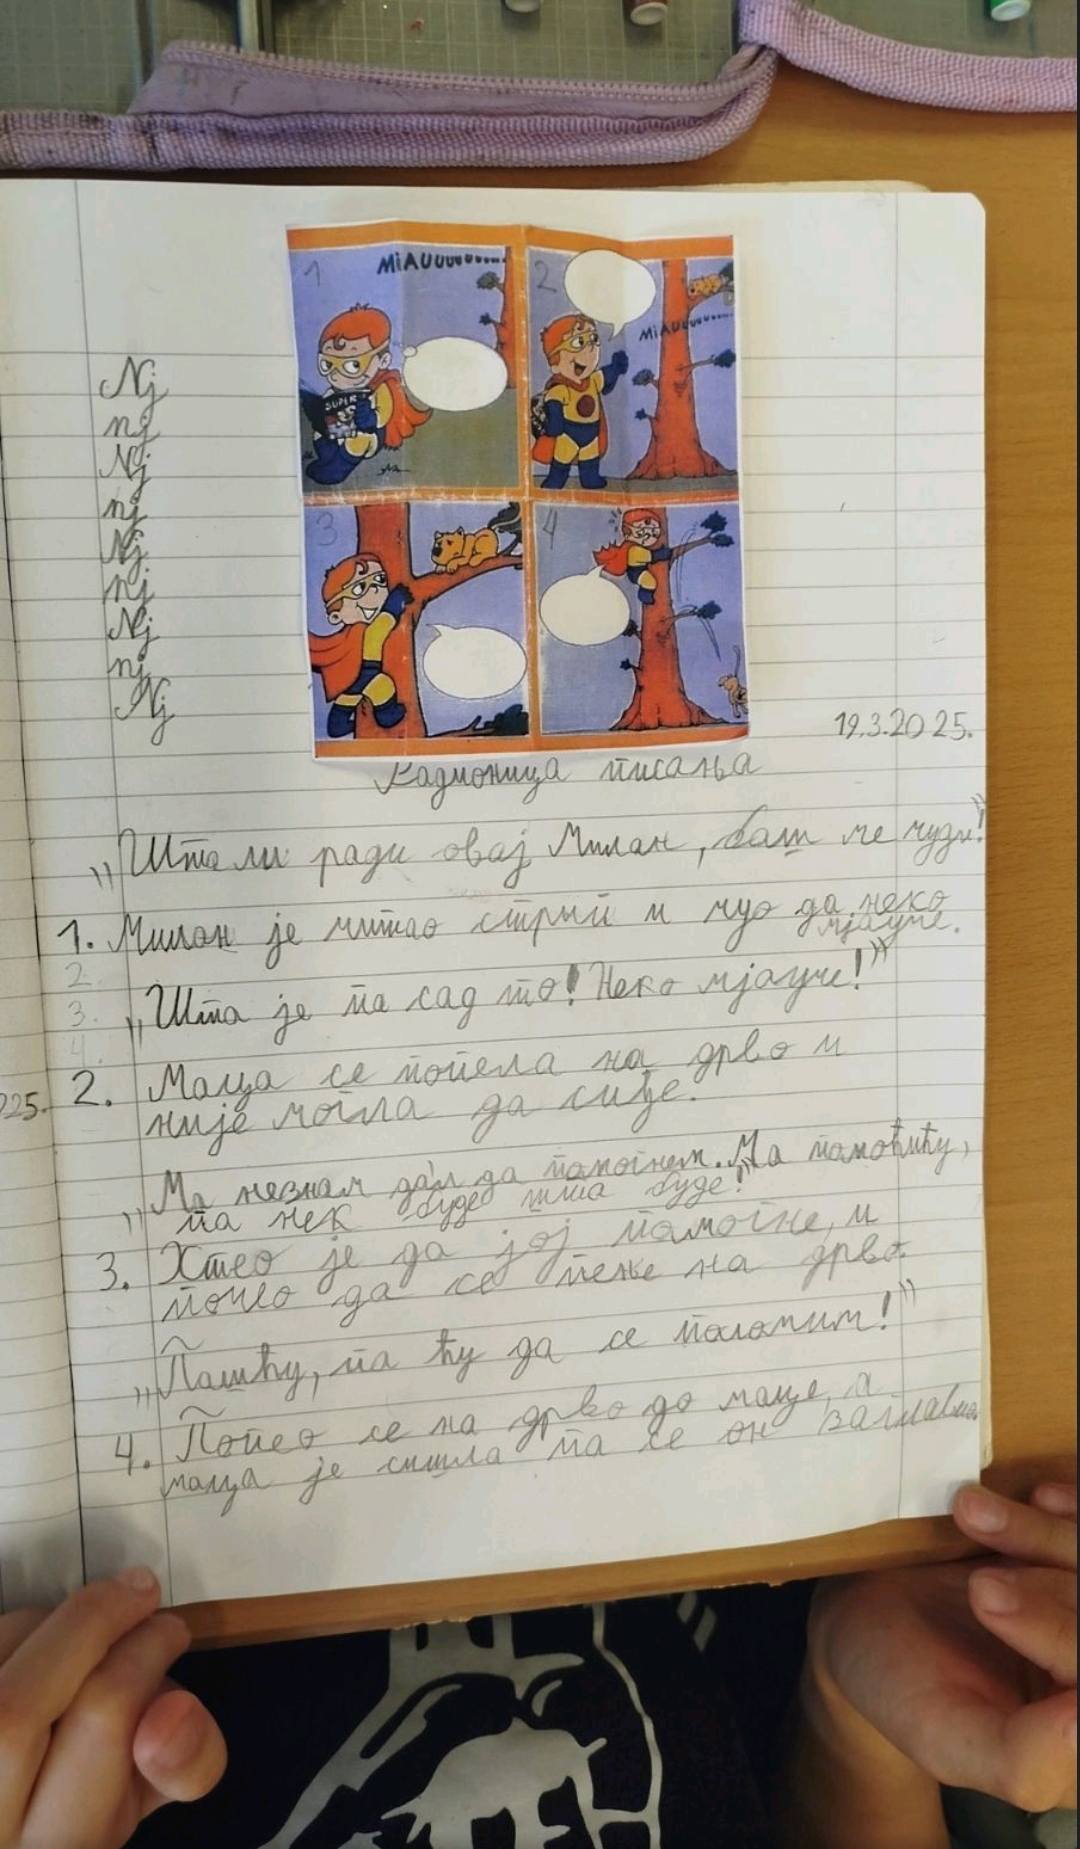 1
MiAUUUUUUU....
SUPER
2
MiAUUUUUUUU....
3
4
Nj
nj
Nj
nj
Nj
nj
Nj
nj
Nj
19.3.2025.
Радионица писања
„Шта ли ради овај Милан, баш ме чуди!”
1. Милан је читао стрип и чуо да неко
мјауче.
2.
3.
4.
„Шта је па сад то! Неко мјауче!”
025.
2. Маца се попела на дрво и
није могла да сиђе.
„Ма незнам дал да помогнем. Ма помоћићу,
па нек буде шта буде!”
3. Хтео је да јој помогне, и
почео да се пење на дрво.
„Пашћу, па ћу да се поломим!”
4. Попео се на дрво до маце, а
маца је сишла па се он заглавио